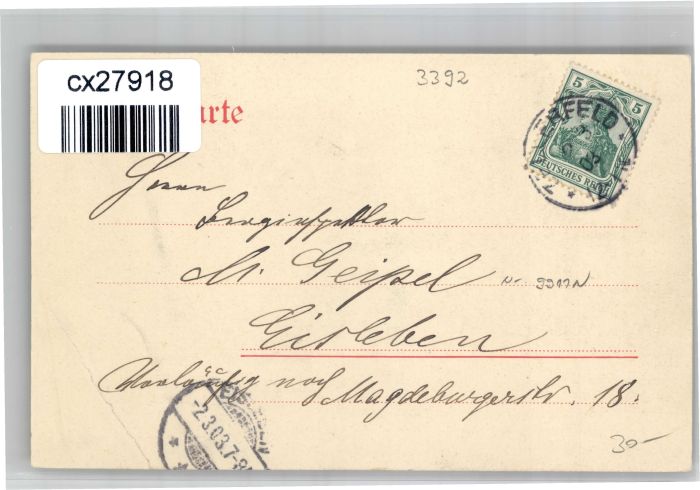 cx27918
3392
arte
5 5
DEUTSCHES REICH
ERFELD
Herrn
Berginspektor
M. Geipel
Eisleben
Vorläufig noch Magdeburgerstr. 18.
2.3.03.7-8
30-